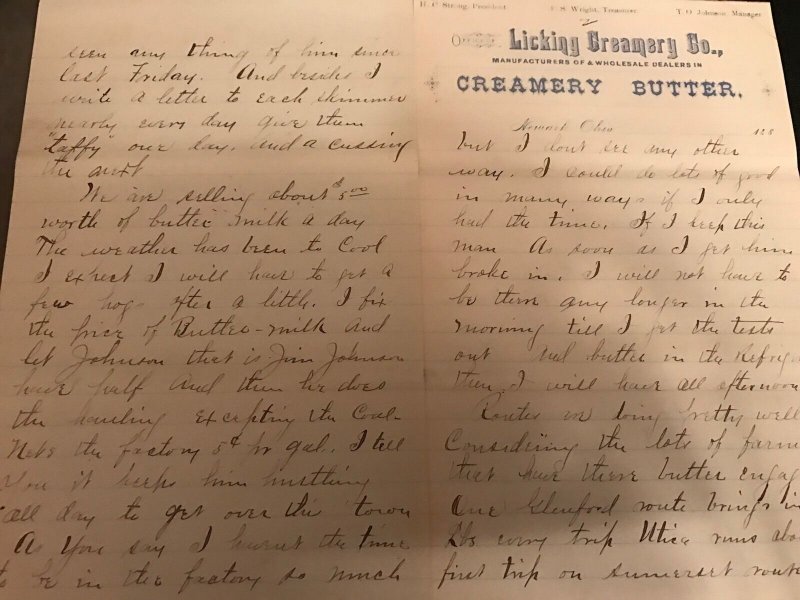 seen any thing of him since
last Friday. And besides I
write a letter to each skimmer
nearly every day give them
"taffy" one day, and a cussing
the next
We are selling about $5.00
worth of butter milk a day
The weather has been to Cool
I expect I will have to get a
few hogs after a little. I fix
the price of Butter-milk and
let Johnson that is Jim Johnson
have half And then he does
the hauling Excepting the Coal-
Nets the factory 5¢ pr gal. I tell
You it keeps him hustling
all day to get over this town
As You say I havent the time
to be in the factory so much
H. C. Strong, President. F. S. Wright, Treasurer. T. O. Johnson, Manager
Licking Creamery Co.,
MANUFACTURERS OF & WHOLESALE DEALERS IN
CREAMERY BUTTER.
Newark Ohio 188
but I dont see any other
way. I could do lots of good
in many ways if I only
had the time. If I keep this
man As soon as I get him
broke in. I will not have to
be there any longer in the
morning till I get the tests
out and butter in the Refrig
then I will have all afternoon
Routes are doing pretty well
Considering the lots of farm
that have there butter engag
One Glenford route brings in
lbs every trip Utica runs abo
first trip on sumerset route